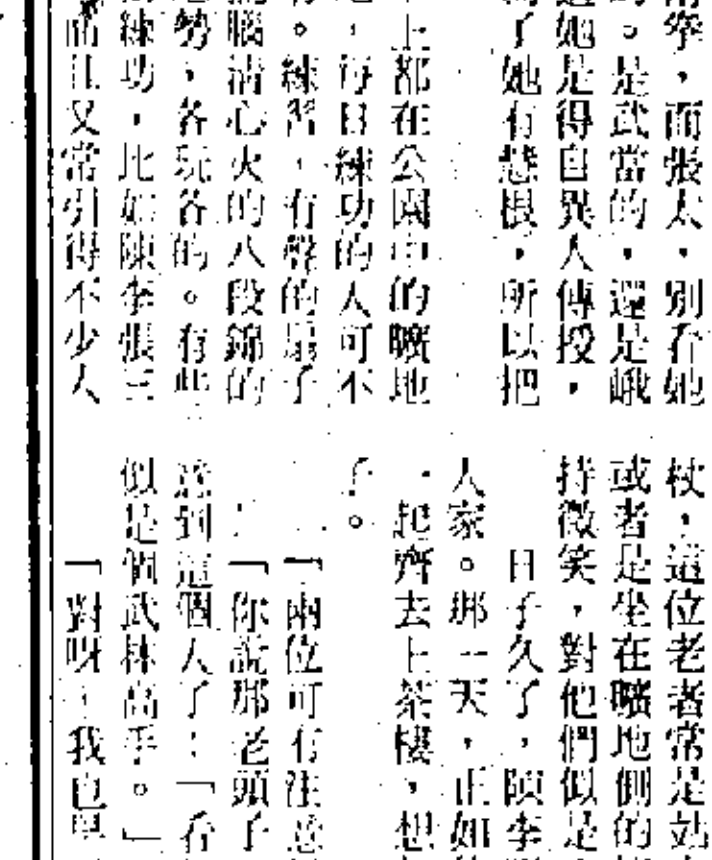 常窄，面張太，別看她
。是武當的，還是峨
她是得自異人傳授，
了她有慧根，所以把
上都在公園中的曠地
，每日練功的人可不
。練習，有聲的扇子
腦清心火的八段錦的
勢，各玩各的。有些
練功，比如陳李張三
而且又常引得不少人
杖，這位老者常是站
或者是坐在曠地側的
持微笑，對他們似是
日子久了，陳李
人家。那一天，正如
一起齊去上茶樓，想
了。
「兩位可有注意
「你說那老頭子
意到這個人了：「看
似是個武林高手。」
「對呀，我也早